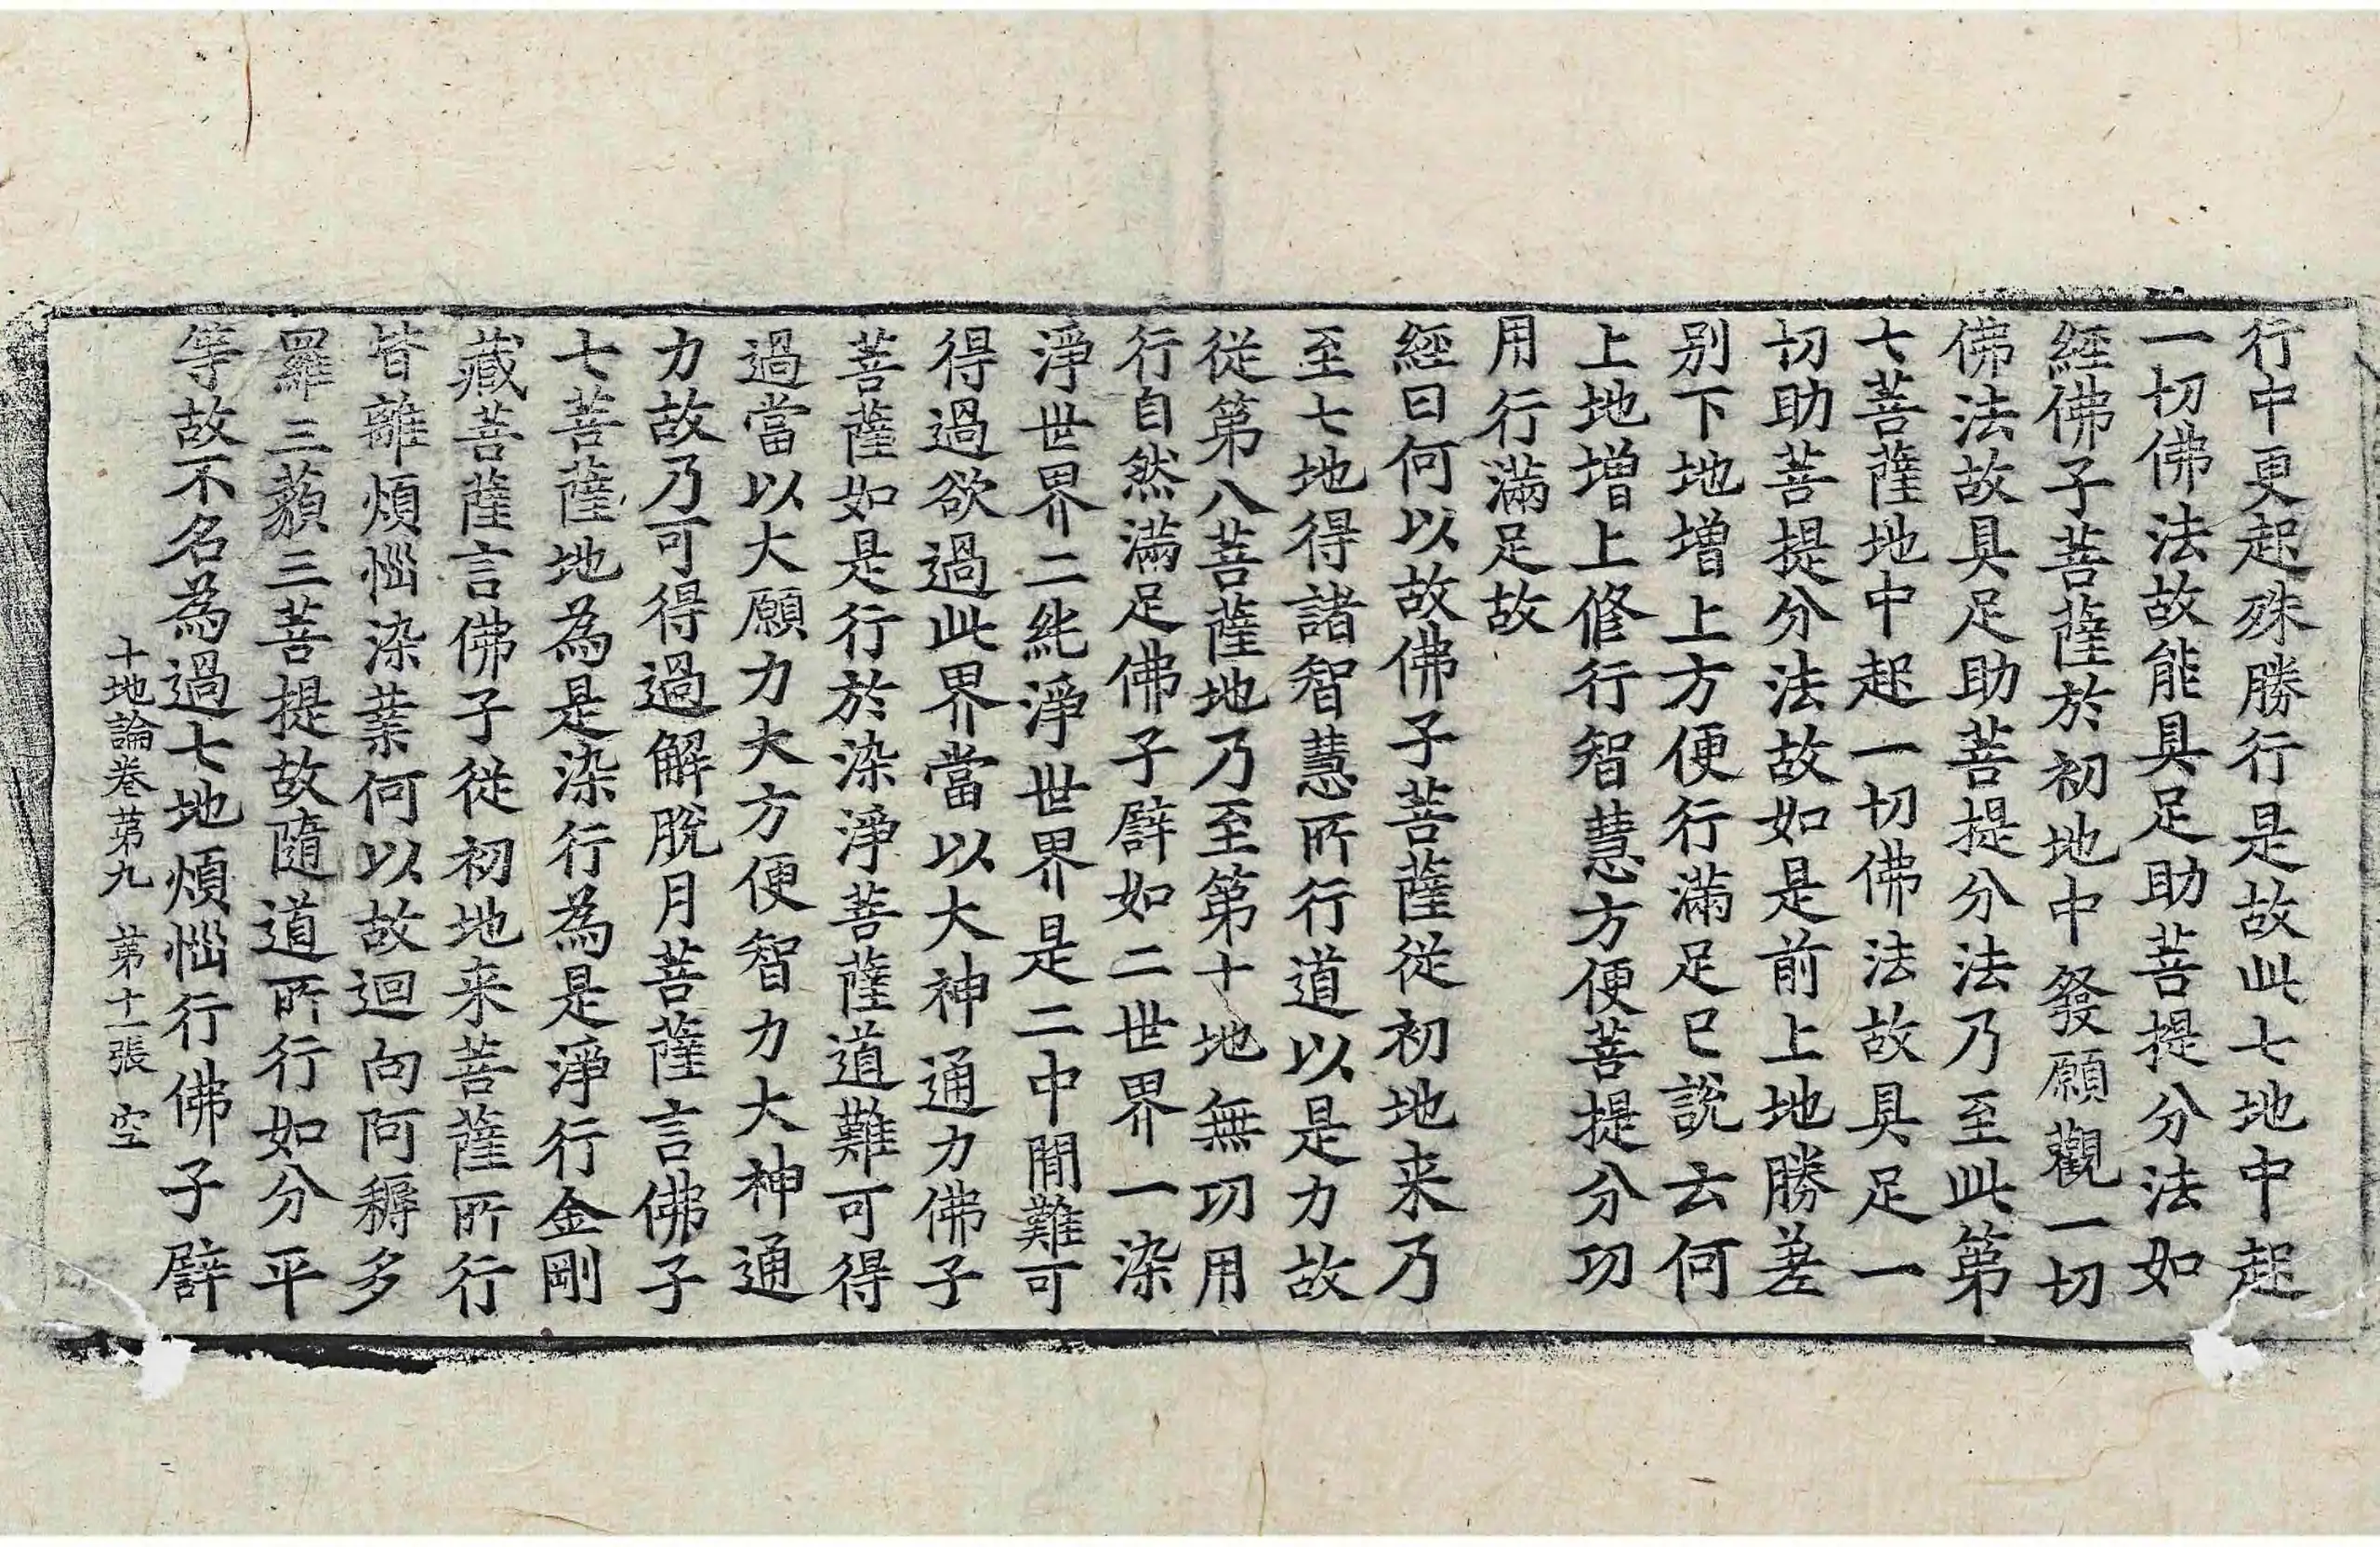 行中更起殊勝行是故此七地中起
一切佛法故能具足助菩提分法如
經佛子菩薩於初地中發願觀一切
佛法故具足助菩提分法乃至此第
七菩薩地中起一切佛法故具足一
切助菩提分法故如是前上地勝差
别下地增上方便行滿足已說云何
上地增上修行智慧方便菩提分功
用行滿足故
經曰何以故佛子菩薩從初地来乃
至七地得諸智慧所行道以是力故
從第八菩薩地乃至第十地無功用
行自然滿足佛子譬如二世界一染
淨世界二純淨世界是二中間難可
得過欲過此界當以大神通力佛子
菩薩如是行於染淨菩薩道難可得
過當以大願力大方便智力大神通
力故乃可得過解脫月菩薩言佛子
七菩薩地為是染行為是淨行金剛
藏菩薩言佛子從初地来菩薩所行
皆離煩惱染業何以故迴向阿耨多
羅三藐三菩提故隨道所行如分平
等故不名為過七地煩惱行佛子譬
十地論卷第九　第十一張　空